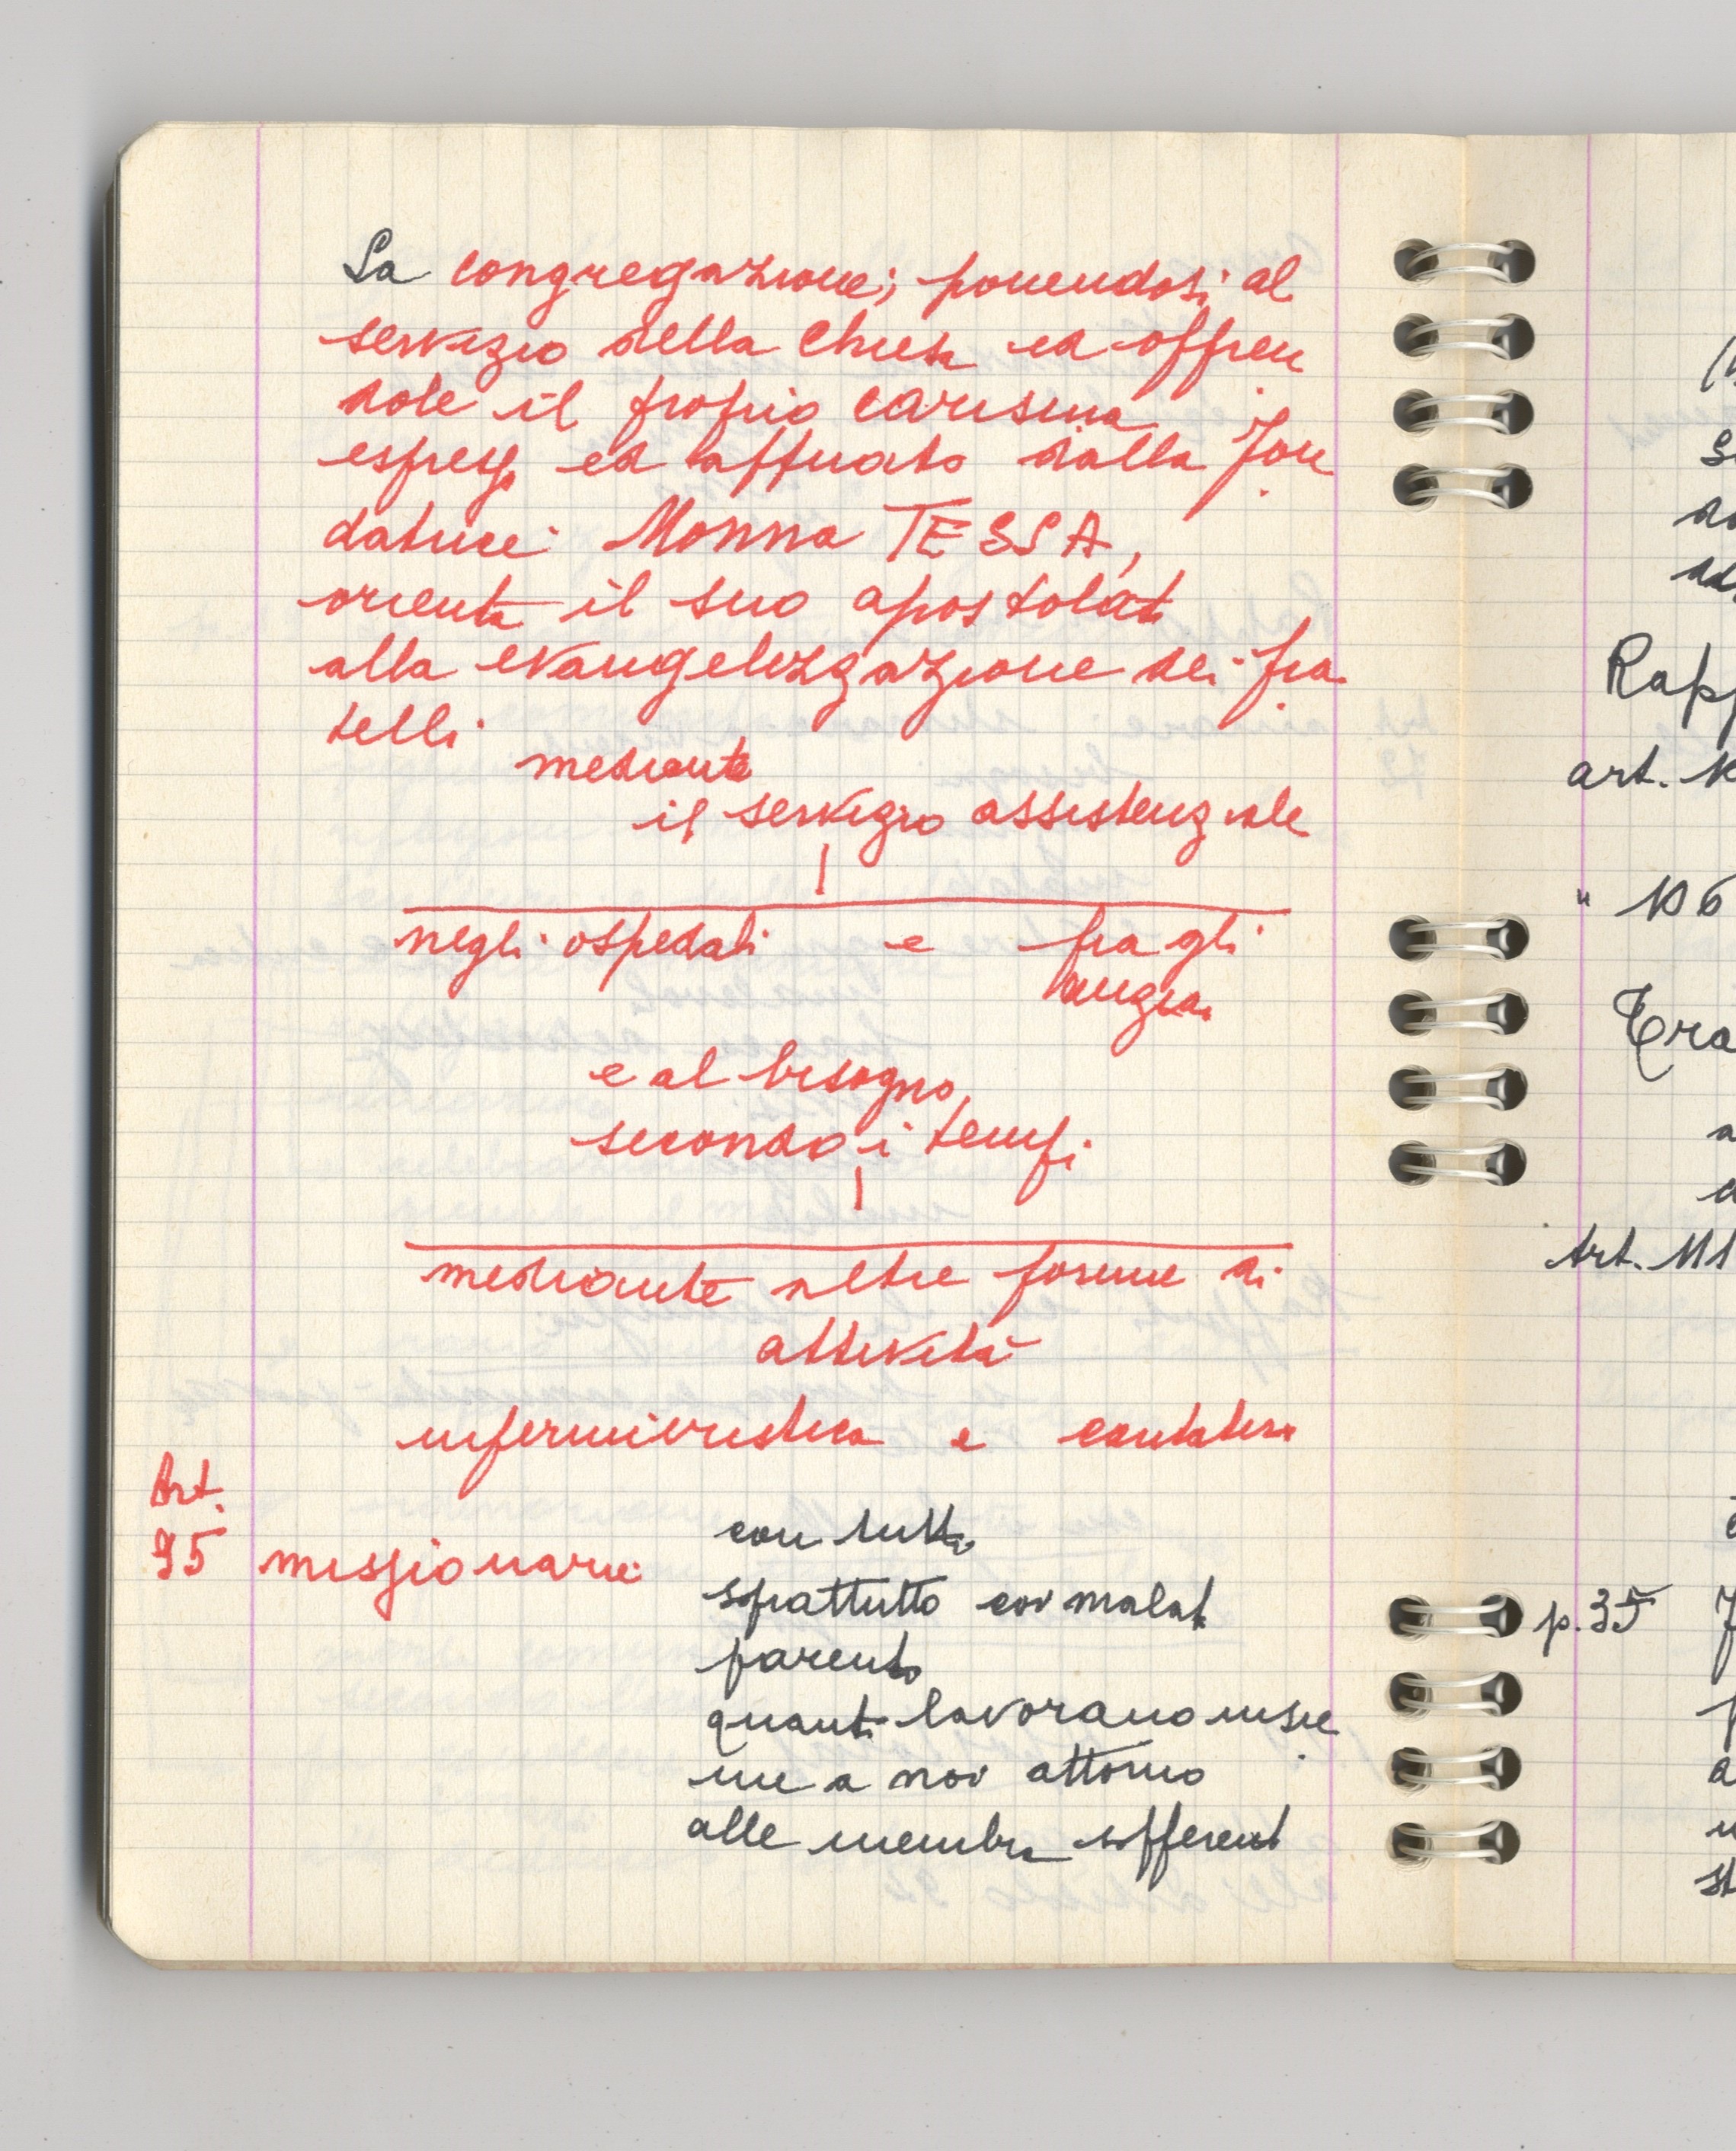 La congregazione; ponendosi al
servizio della Chiesa ed offren
dole il proprio carisma
espresso ed attuato dalla fon
datrice Monna TESSA,
orienta il suo apostolato
alla evangelizzazione dei fra
telli
mediante
il servizio assistenziale
negli ospedali e fra gli
anziani
e al bisogno
secondo i tempi
mediante altre forme di
attività
infermieristica e caritativa
Art.
95 missionarie
con tutti
soprattutto coi malati
parenti
quanti lavorano insie
me a noi attorno
alle membra sofferenti
Rapp
art.
" 106
Tra
Art. 111
p. 35